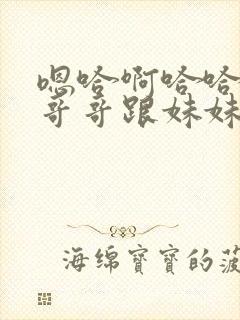 嗯哈啊哈哈
哥哥跟妹妹
海绵宝宝的菠